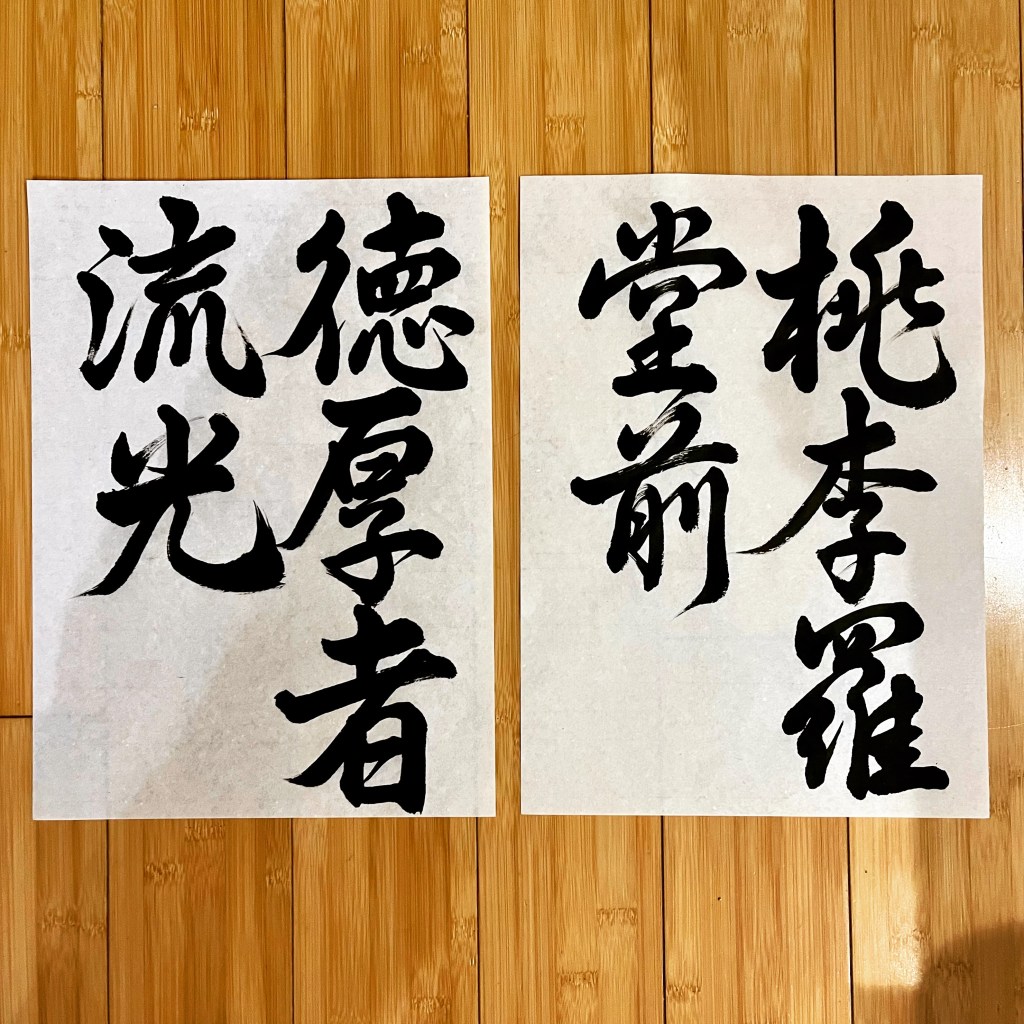 桃李羅
堂前
德厚者
流光